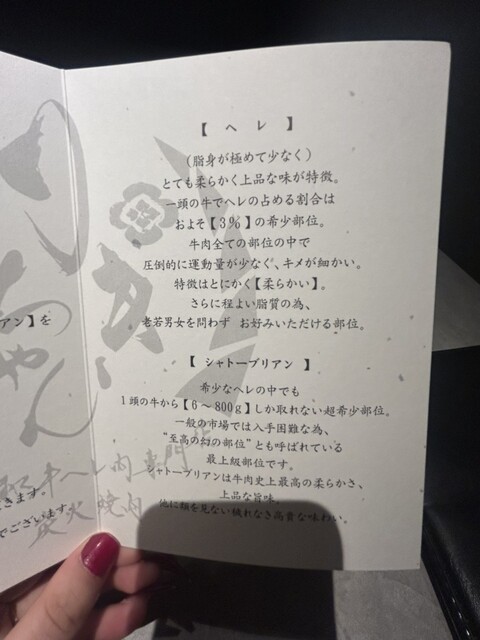 【 ヘ レ 】
（脂身が極めて少なく）
とても柔らかく上品な味が特徴。
一頭の牛でヘレの占める割合は
およそ【3%】の希少部位。
牛肉全ての部位の中で
圧倒的に運動量が少なく、キメが細かい。
特徴はとにかく【柔らかい】。
さらに程よい脂質の為、
老若男女を問わず お好みいただける部位。
【 シャトーブリアン 】
希少なヘレの中でも
1頭の牛から【6〜800g】しか取れない超希少部位。
一般の市場では入手困難な為、
“至高の幻の部位”とも呼ばれている
最上級部位です。
シャトーブリアンは牛肉史上最高の柔らかさ、
上品な旨味、
他に類を見ない穢れなき高貴な味わい。
アン】を
きます
でございます
牛ヘレ肉専門
炭火焼肉